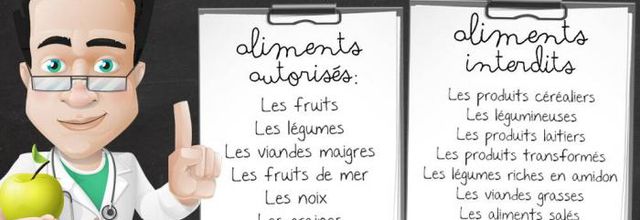 aliments
autorisés:
Les fruits
Les légumes
Les viandes maigres
Les fruits de mer
Les noix
aliments
interdits
Les produits céréaliers
Les légumineuses
Les produits laitiers
Les produits transformés
Les légumes riches en amidon
Les viandes grasses
Les aliments salés